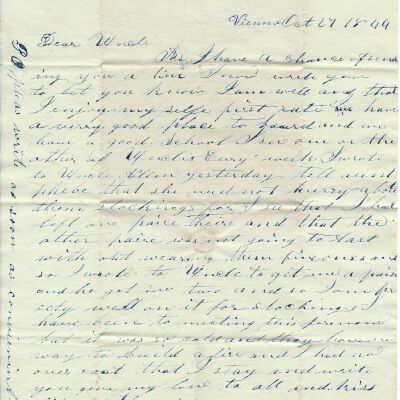 Vienna Oct 27 1849
Dear Uncle
As I have a chance of send
ing you a line I now write you
to let you know I am well and that
I enjoy my selfe first rate we have
a very good place to board and we
have a good School I see one or the
other of Uncles every week I wrote
to Uncle yesterday tell aunt
phebe that she need not hurry about
them stockings for I see that I had
left one paire theire and that the
other paire was not going to last
with out wearing them
so I wrote to Uncle to get me a paire
and he got me two and so I am pr
etty well on it for stockings I
have been to meeting this forenoon
but it was so cold and they have no
way to build a fire and I had no
over coat that I stay and write
you give my love to all and kiss
PS please write as soon as